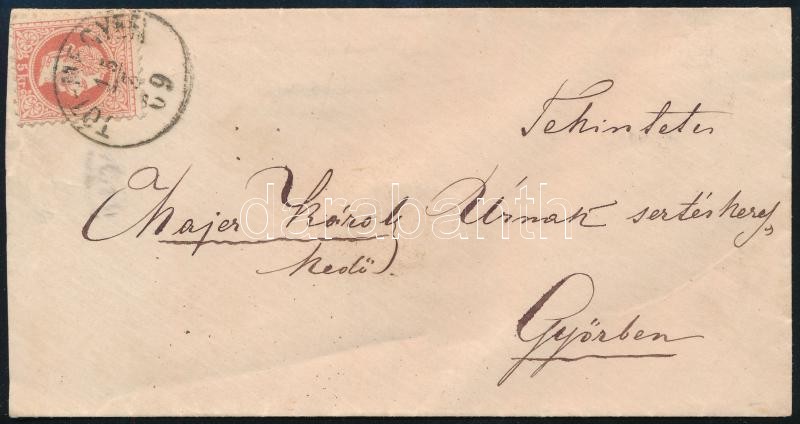 5 kr
TÓT-MEGYER
15
69
Tekintetes
Majer Károly Úrnak sertéskeres„
kedő
Győrben
darabanth